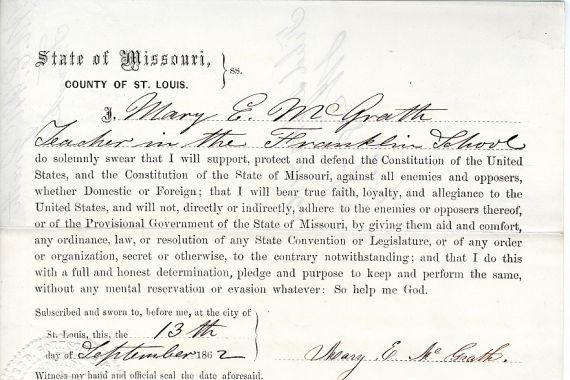 State of Missouri, } ss.
COUNTY OF ST. LOUIS.
I, Mary E. McGrath
Teacher in the Franklin School
do solemnly swear that I will support, protect and defend the Constitution of the United
States, and the Constitution of the State of Missouri, against all enemies and opposers,
whether Domestic or Foreign; that I will bear true faith, loyalty, and allegiance to the
United States, and will not, directly or indirectly, adhere to the enemies or opposers thereof,
or of the Provisional Government of the State of Missouri, by giving them aid and comfort,
any ordinance, law, or resolution of any State Convention or Legislature, or of any order
or organization, secret or otherwise, to the contrary notwithstanding; and that I do this
with a full and honest determination, pledge and purpose to keep and perform the same,
without any mental reservation or evasion whatever: So help me God.
Subscribed and sworn to, before me, at the city of
St. Louis, this, the 13th
day of September 1862
Mary E. McGrath.
Witness my hand and official seal the date aforesaid.